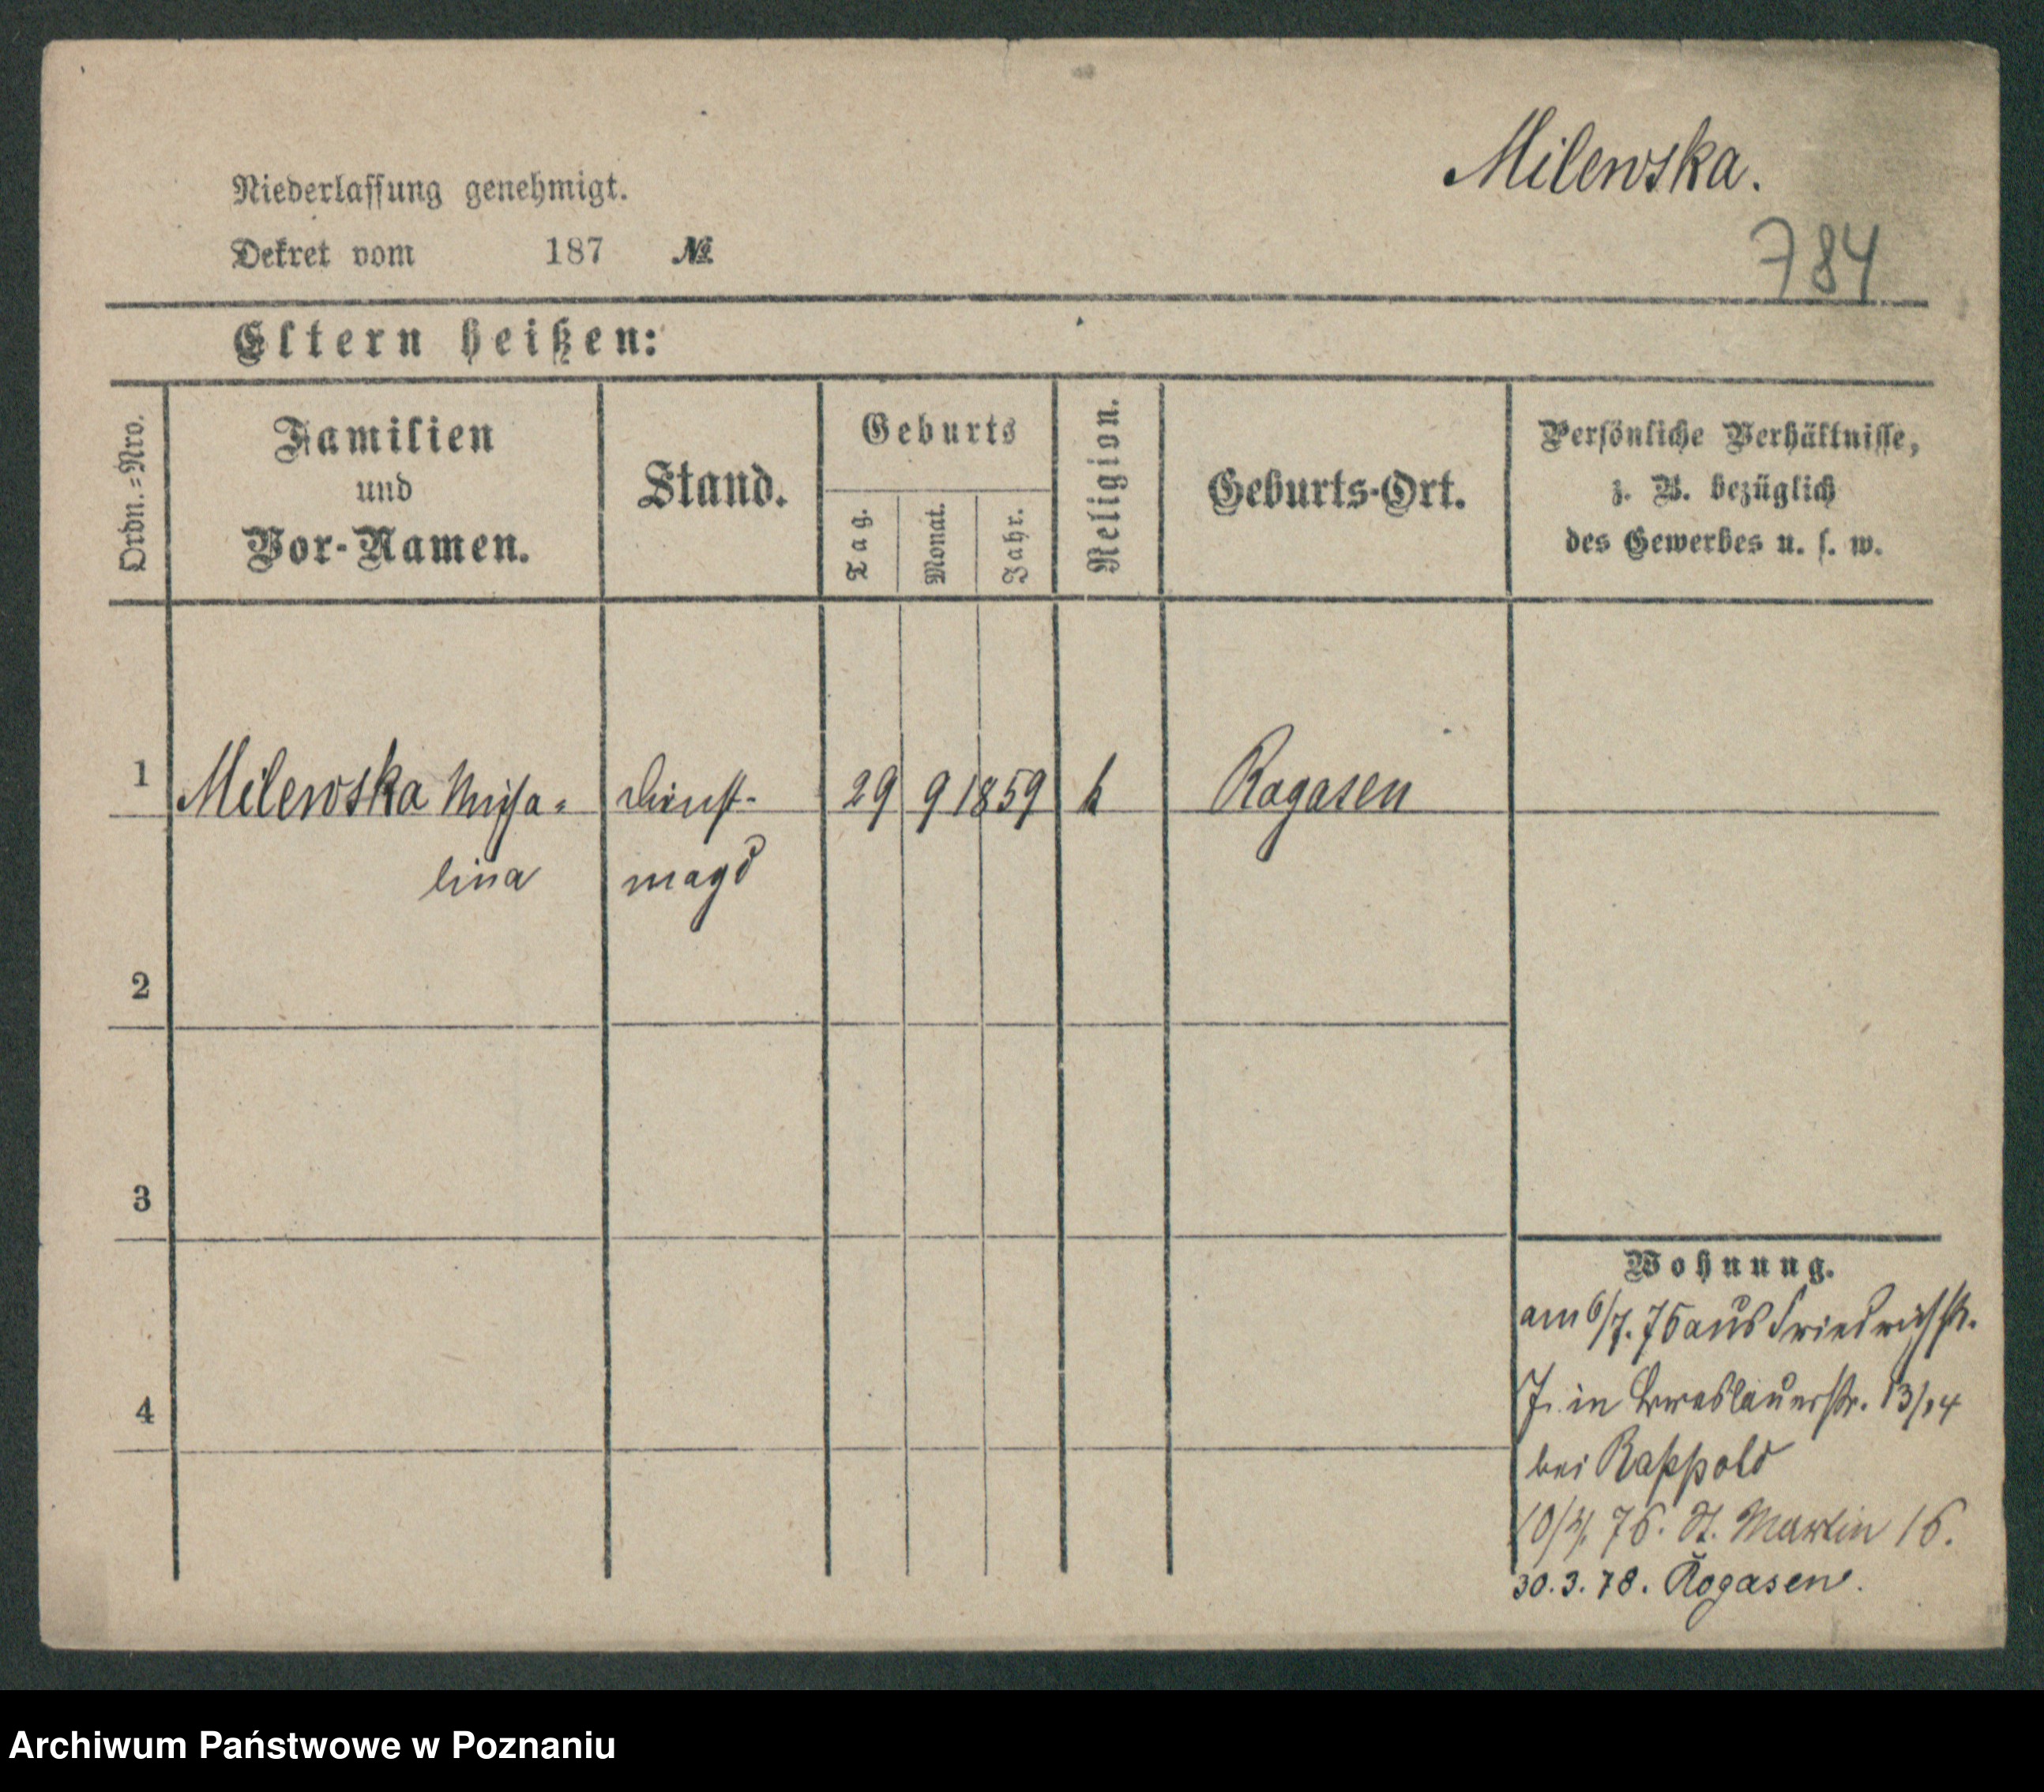 Milewska.
784
Niederlassung genehmigt.
Dekret vom 187 №
Eltern heißen:
Ordn.=Nro.
Familien
und
Vor-Namen.
Stand.
Geburts
Tag.
Monat.
Jahr.
Religion.
Geburts-Ort.
Persönliche Verhältnisse,
z. B. bezüglich
des Gewerbes u. s. w.
1 Milewska Micha= Dienst- 29 9 1859 k Rogasen
lina magd
2
3
4
Wohnung.
am 6/7. 75 aus Friedrichstr.
7. in Breslauerstr. 13/14
bei Rappold
76. St. Martin 16.
30.3.78. Rogasen.
Archiwum Państwowe w Poznaniu